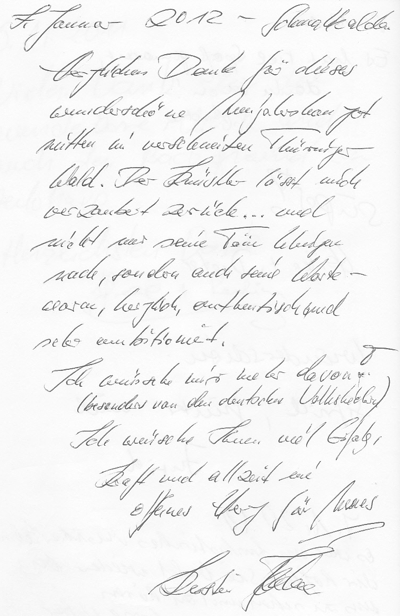 7. Januar 2012 – Schmalkalden
Herzlichen Dank für dieses
wunderschöne Neujahrskonzert
mitten im verschneiten Thüringer
Wald. Der Künstler lässt mich
verzaubert zurück... und
nicht nur seine Töne klingen
nach, sondern auch seine Worte –
warm, herzlich, authentisch und
sehr ambitioniert.
Ich wünsche mir mehr davon
(besonders von den deutschen Volksliedern)
Ich wünsche Ihnen viel Erfolg,
Kraft und allzeit ein
offenes Herz für Neues
Kerstin